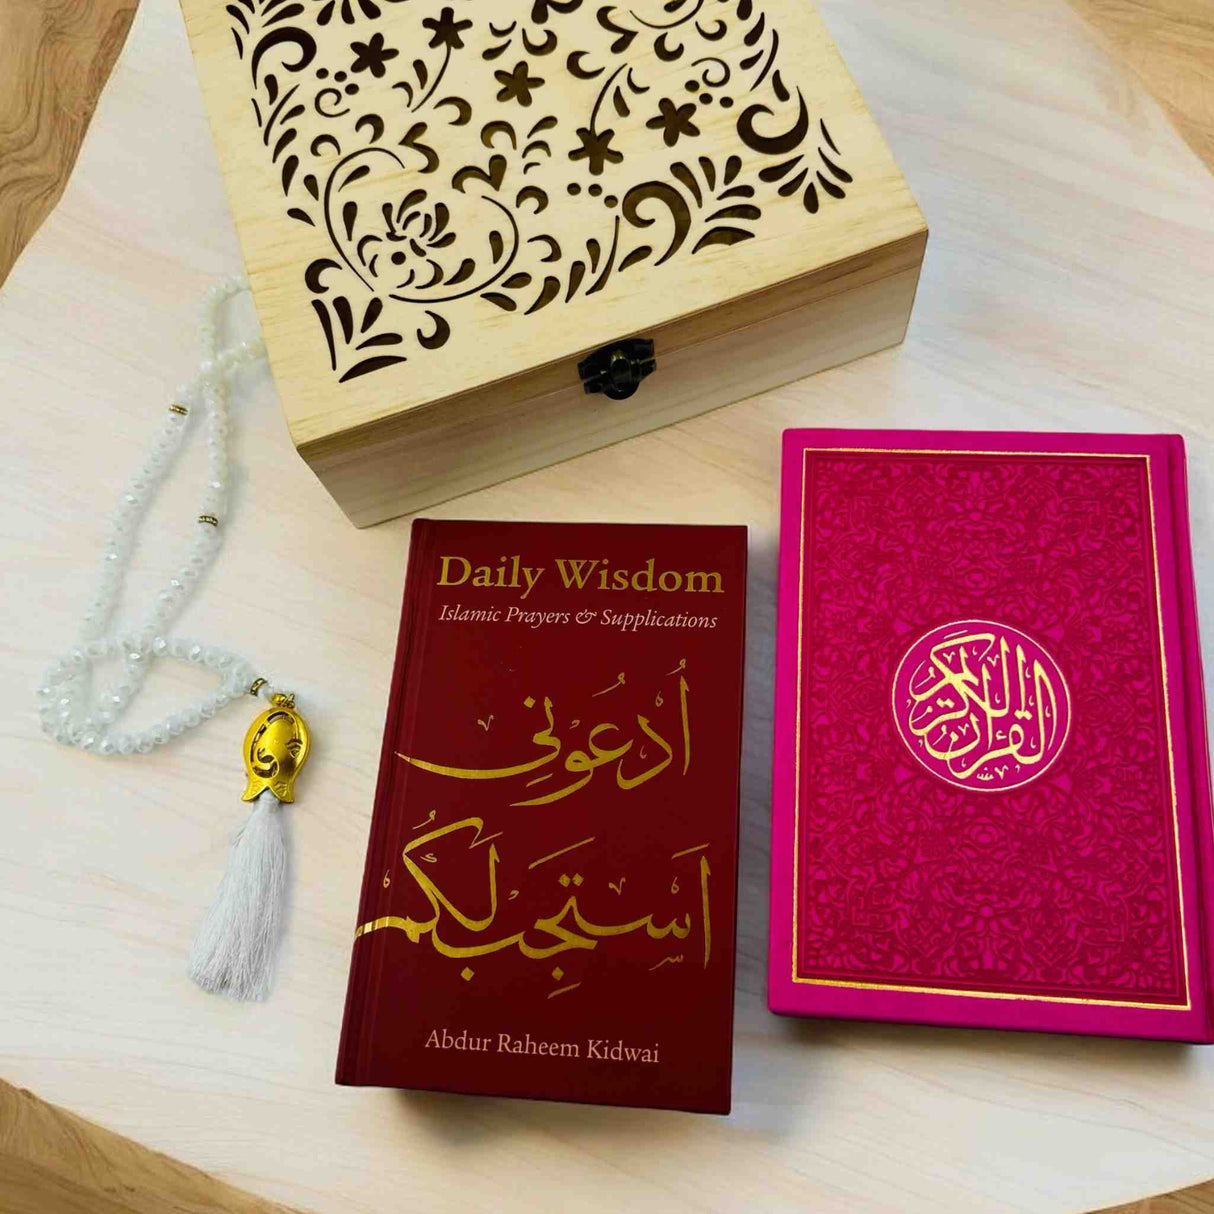 Daily Wisdom
Islamic Prayers & Supplications
اُدْعُوْنِي
اَسْتَجِبْ لَكُمْ
Abdur Raheem Kidwai
القرآن الكريم